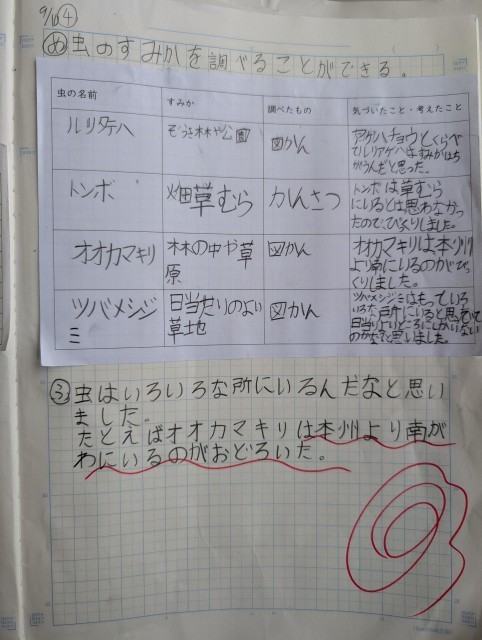 9/10④
㋱虫のすみかを調べることができる。
虫の名前 すみか 調べたもの 気づいたこと・考えたこと
ルリタテハ ぞうき林や公園 図かん アゲハチョウとくらべ
てルリアゲハはすみかはち
がうんだと思った。
トンボ 畑草むら かんさつ トンボは草むら
にいるとは思わなかっ
たので、びっくりしました。
オオカマキリ 林の中や草 図かん オオカマキリは本州
原 より南にいるのがびっ
くりしました。
ツバメシジ 日当たりのよい 図かん ツバメシジミはもっている
ミ 草地 いろな戸所にいると思って
日当りよいところにしかいない
のかなと思いました。
㋫虫はいろいろな所にいるんだなと思い
ました。
たとえばオオカマキリは本州より南が
わにいるのがおどろいた。